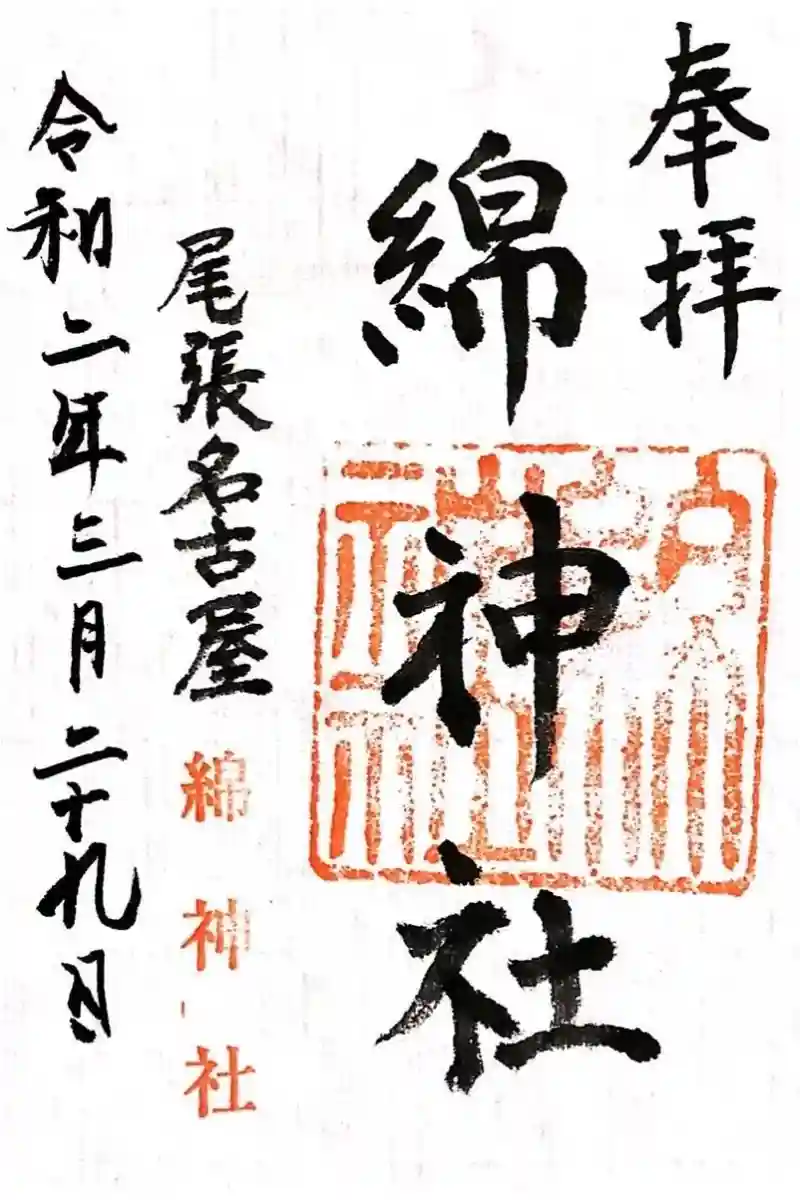 奉拝
綿神社
綿神社
尾張名古屋
綿神社
令和二年三月二十九日